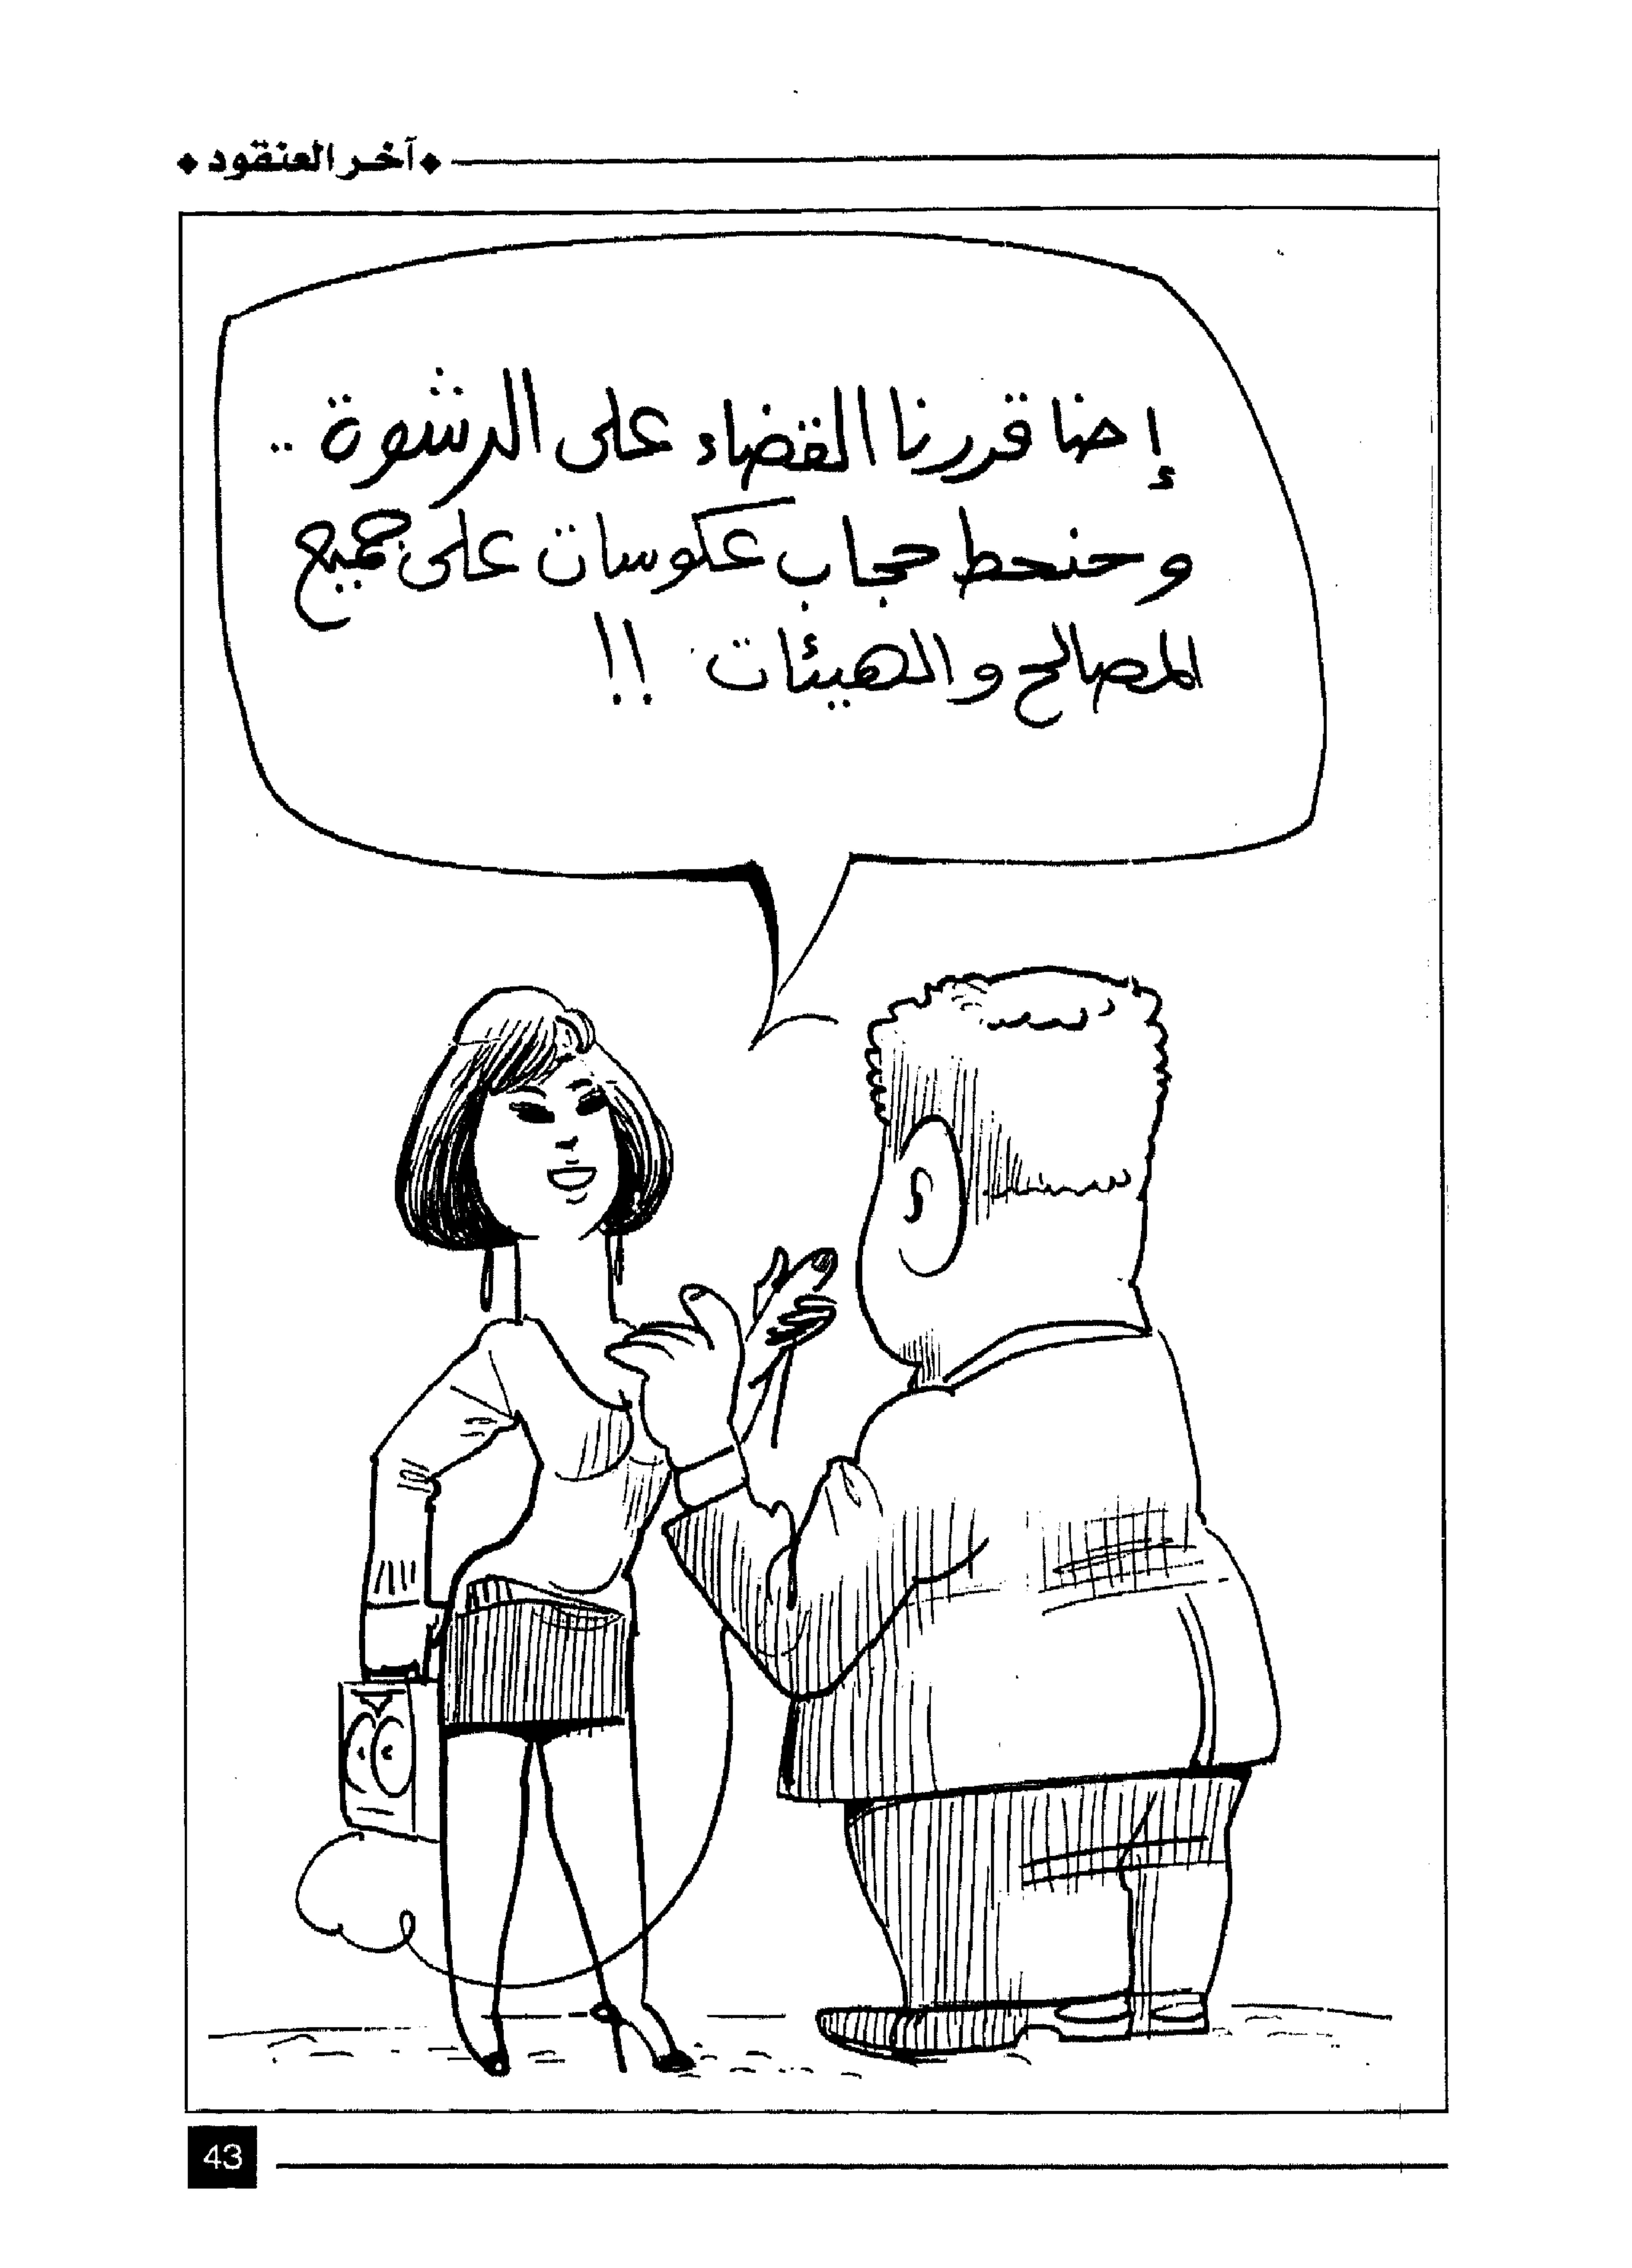 آخر العنقود
إحنا قررنا القضاء على الرشوة ..
وحنحط حجاب عكوسات على جميع
المصالح والهيئات !!
43